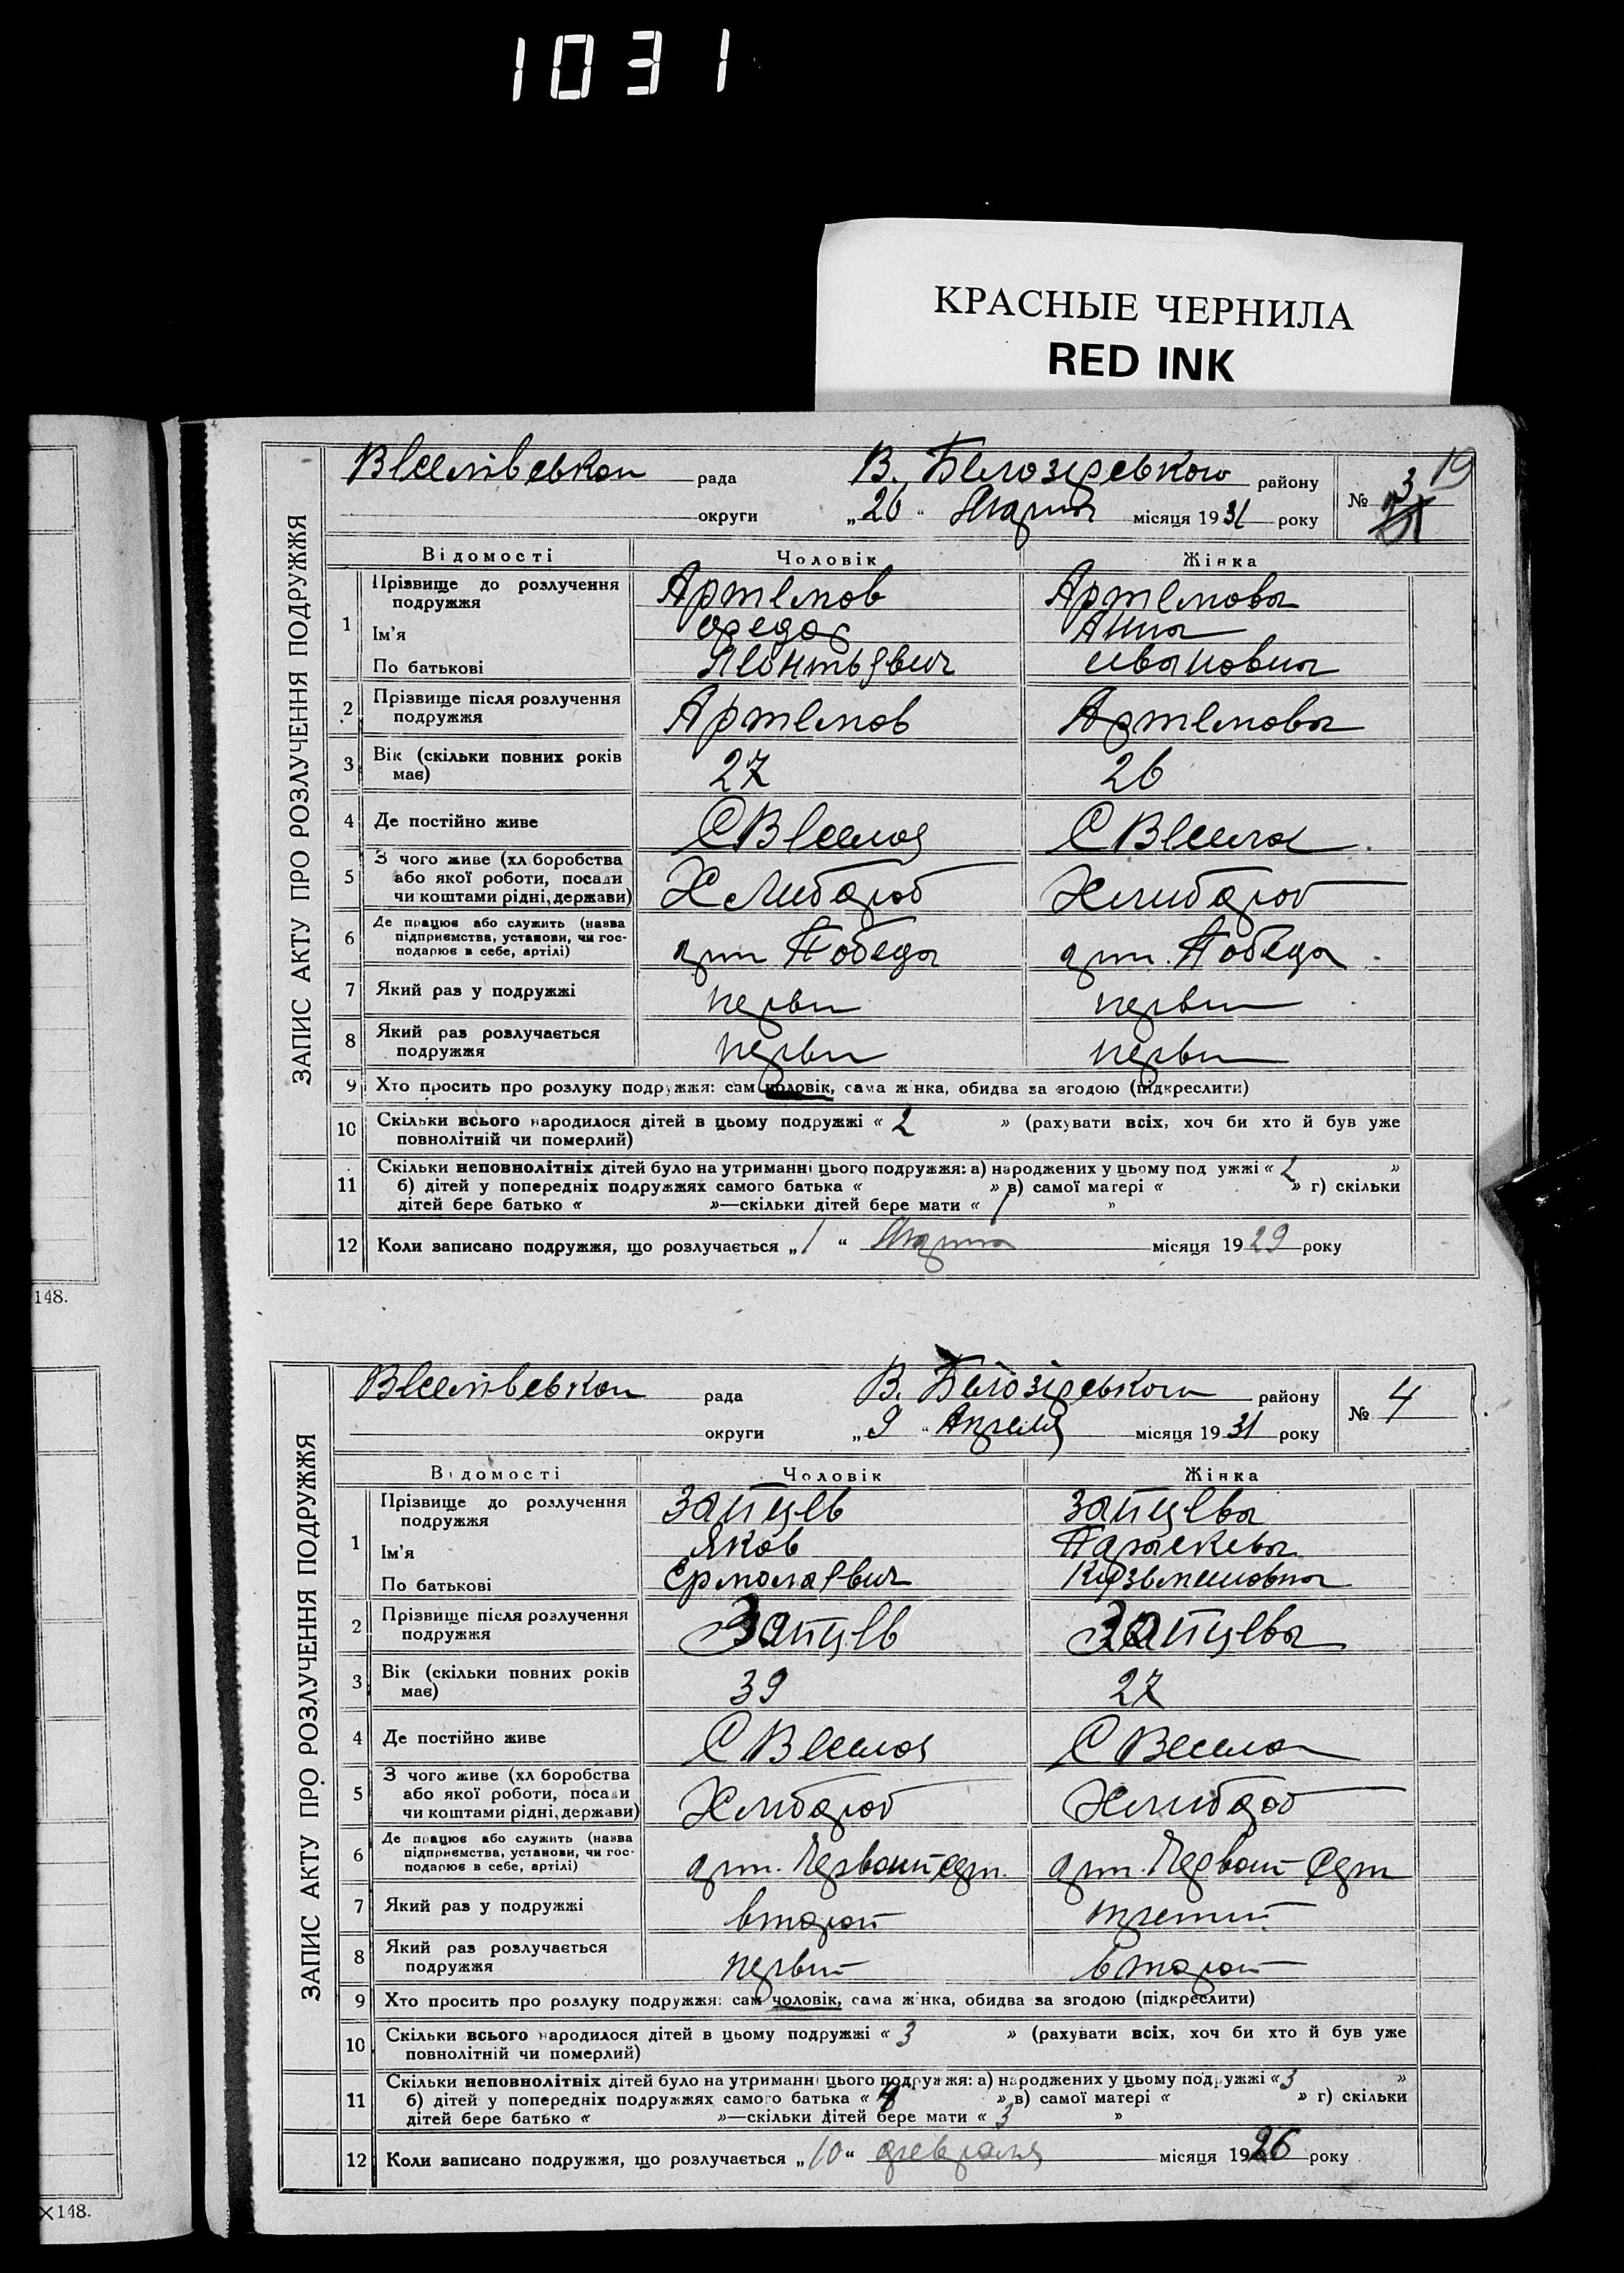 1031
КРАСНЫЕ ЧЕРНИЛА
RED INK
ЗАПИС АКТУ ПРО РОЗЛУЧЕННЯ ПОДРУЖЖЯ
19
рада В. Білозірського району № 3
округи „26“ января місяця 1931 року
Відомості Чоловік Жінка
1 Прізвище до розлучення подружжя Артемов Артемова
Ім'я Федор Анна
По батькові Леонтьевич Ивановна
2 Прізвище після розлучення подружжя Артемов Артемова
3 Вік (скільки повних років має) 27 26
4 Де постійно живе С Веселоя С Весела
5 З чого живе (хліборобства або якої роботи, посади чи коштами рідні, держави) Хлибароб Хлибароб
6 Де працює або служить (назва підприємства, установи, чи господарює в себе, артілі) арт. Победа арт. Победа
7 Який раз у подружжі перви перви
8 Який раз розлучається подружжя перви перви
9 Хто просить про розлуку подружжя: сам чоловік, сама жінка, обидва за згодою (підкреслити)
10 Скільки всього народилося дітей в цьому подружжі « 2 » (рахувати всіх, хоч би хто й був уже
повнолітній чи померлий)
11 Скільки неповнолітніх дітей було на утриманні цього подружжя: а) народжених у цьому подружжі « »
б) дітей у попередніх подружжях самого батька « » в) самої матері « » г) скільки
дітей бере батько « »—скільки дітей бере мати « 1 »
12 Коли записано подружжя, що розлучається „1“ января місяця 1929 року
148.
ЗАПИС АКТУ ПРО РОЗЛУЧЕННЯ ПОДРУЖЖЯ
рада В. Білозірського району № 4
округи „9“ Апреля місяця 1931 року
Відомості Чоловік Жінка
1 Прізвище до розлучення подружжя Зайцев Зайцева
Ім'я Яков Параскева
По батькові Ермолаевич Кузьминовна
2 Прізвище після розлучення подружжя Зайцев Зайцева
3 Вік (скільки повних років має) 39 27
4 Де постійно живе С Веселоя С Весела
5 З чого живе (хліборобства або якої роботи, посади чи коштами рідні, держави) Хлибароб Хлибароб
6 Де працює або служить (назва підприємства, установи, чи господарює в себе, артілі) арт. арт.
7 Який раз у подружжі второй третий
8 Який раз розлучається подружжя первий второй
9 Хто просить про розлуку подружжя: сам чоловік, сама жінка, обидва за згодою (підкреслити)
10 Скільки всього народилося дітей в цьому подружжі « 3 » (рахувати всіх, хоч би хто й був уже
повнолітній чи померлий)
11 Скільки неповнолітніх дітей було на утриманні цього подружжя: а) народжених у цьому подружжі «3 »
б) дітей у попередніх подружжях самого батька « » в) самої матері « » г) скільки
дітей бере батько « »—скільки дітей бере мати « 3 »
12 Коли записано подружжя, що розлучається „10“ февраля місяця 1926 року
×148.